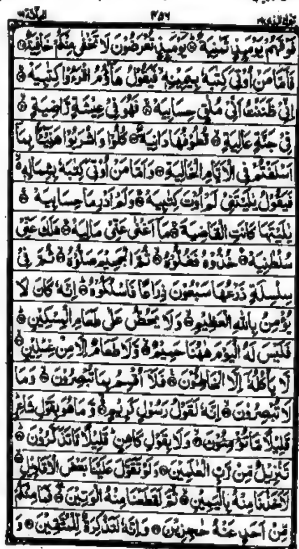 فَوْقَهُمْ يَوْمَئِذٍ ثَمٰنِيَةٌ يَوْمَئِذٍ تُعْرَضُوْنَ لَا تَخْفٰى مِنْكُمْ خَافِيَةٌ
فَاَمَّا مَنْ اُوْتِيَ كِتٰبَهٗ بِيَمِيْنِهٖ فَيَقُوْلُ هَآؤُمُ اقْرَءُوْا كِتٰبِيَهْ
اِنِّيْ ظَنَنْتُ اَنِّيْ مُلٰقٍ حِسَابِيَهْ فَهُوَ فِيْ عِيْشَةٍ رَّاضِيَةٍ
فِيْ جَنَّةٍ عَالِيَةٍ قُطُوْفُهَا دَانِيَةٌ كُلُوْا وَاشْرَبُوْا هَنِيْٓئًا بِمَا
اَسْلَفْتُمْ فِي الْاَيَّامِ الْخَالِيَةِ وَاَمَّا مَنْ اُوْتِيَ كِتٰبَهٗ بِشِمَالِهٖ
فَيَقُوْلُ يٰلَيْتَنِيْ لَمْ اُوْتَ كِتٰبِيَهْ وَلَمْ اَدْرِ مَا حِسَابِيَهْ
يٰلَيْتَهَا كَانَتِ الْقَاضِيَةَ مَآ اَغْنٰى عَنِّيْ مَالِيَهْ هَلَكَ عَنِّيْ
سُلْطٰنِيَهْ خُذُوْهُ فَغُلُّوْهُ ثُمَّ الْجَحِيْمَ صَلُّوْهُ ثُمَّ فِيْ
سِلْسِلَةٍ ذَرْعُهَا سَبْعُوْنَ ذِرَاعًا فَاسْلُكُوْهُ اِنَّهٗ كَانَ لَا
يُؤْمِنُ بِاللّٰهِ الْعَظِيْمِ وَلَا يَحُضُّ عَلٰى طَعَامِ الْمِسْكِيْنِ
فَلَيْسَ لَهُ الْيَوْمَ هٰهُنَا حَمِيْمٌ وَّلَا طَعَامٌ اِلَّا مِنْ غِسْلِيْنٍ
لَّا يَاْكُلُهٗٓ اِلَّا الْخَاطِـُٔوْنَ فَلَآ اُقْسِمُ بِمَا تُبْصِرُوْنَ وَمَا
لَا تُبْصِرُوْنَ اِنَّهٗ لَقَوْلُ رَسُوْلٍ كَرِيْمٍ وَّمَا هُوَ بِقَوْلِ شَاعِرٍ
قَلِيْلًا مَّا تُؤْمِنُوْنَ وَلَا بِقَوْلِ كَاهِنٍ قَلِيْلًا مَّا تَذَكَّرُوْنَ
تَنْزِيْلٌ مِّنْ رَّبِّ الْعٰلَمِيْنَ وَلَوْ تَقَوَّلَ عَلَيْنَا بَعْضَ الْاَقَاوِيْلِ
لَاَخَذْنَا مِنْهُ بِالْيَمِيْنِ ثُمَّ لَقَطَعْنَا مِنْهُ الْوَتِيْنَ فَمَا مِنْكُمْ
مِّنْ اَحَدٍ عَنْهُ حٰجِزِيْنَ وَاِنَّهٗ لَتَذْكِرَةٌ لِّلْمُتَّقِيْنَ وَ